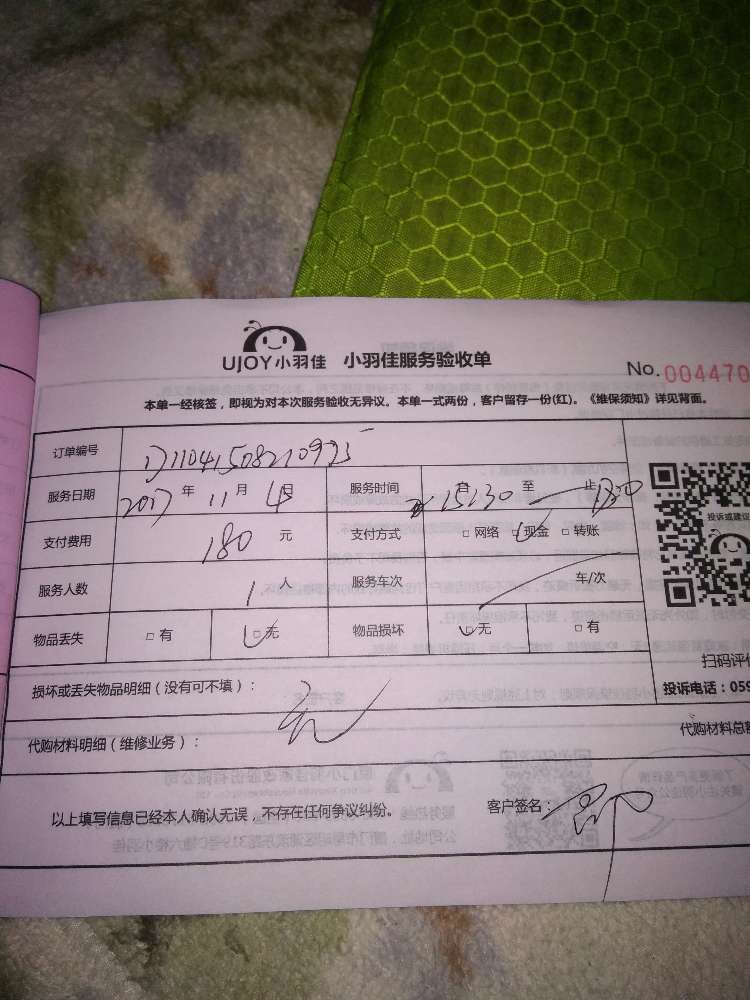 UJOY小羽佳 小羽佳服务验收单
No. 004470
本单一经核签，即视为对本次服务验收无异议。本单一式两份，客户留存一份(红)。《维保须知》详见背面。
订单编号
服务日期 2017 年 11 月 4日 服务时间 自 15:30 至 止
支付费用 180 元 支付方式 □ 网络 □ 现金 □ 转账
服务人数 1 人 服务车次 车/次
物品丢失 □ 有 □ 无 物品损坏 □ 无 □ 有
投诉或建议
扫码评价
投诉电话：059
损坏或丢失物品明细（没有可不填）： 无
代购材料明细（维修业务）：
代购材料总额
以上填写信息已经本人确认无误，不存在任何争议纠纷。
客户签名：